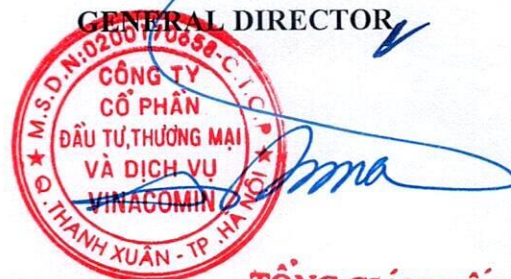 GENERAL DIRECTOR
M.S.D.N:0200170658-C.T.C.P
CÔNG TY
CỔ PHẦN
ĐẦU TƯ,THƯƠNG MẠI
VÀ DỊCH VỤ
VINACOMIN
Q.THANH XUÂN - TP.HÀ NỘI